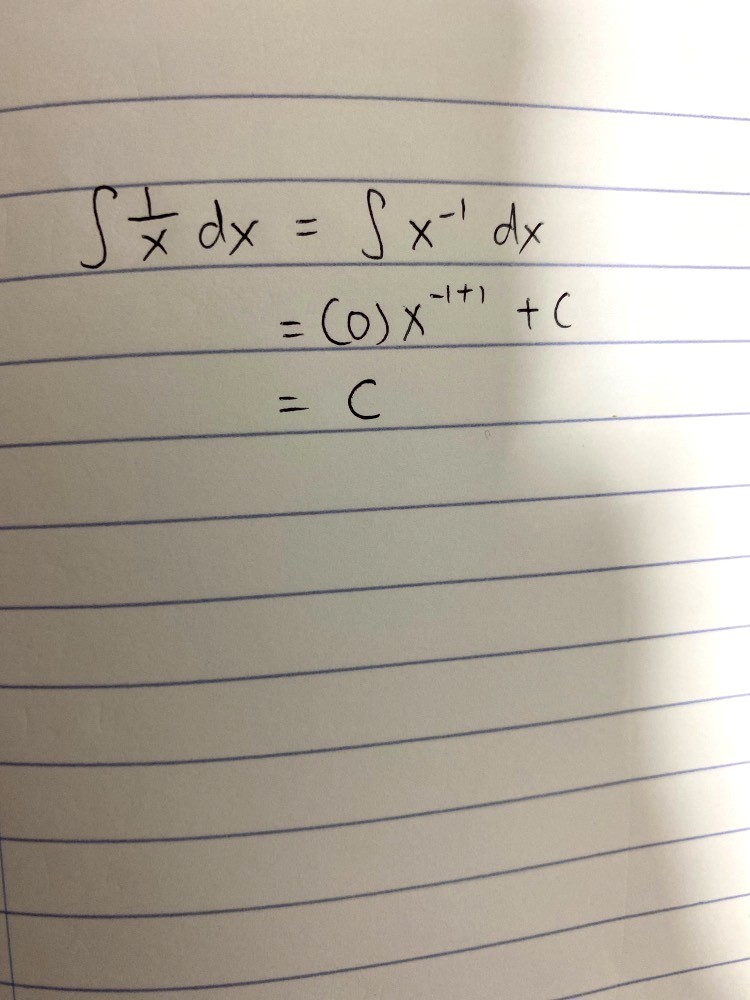 ∫ 1/x dx = ∫ x⁻¹ dx
= (0) x⁻¹⁺¹ + C
= C